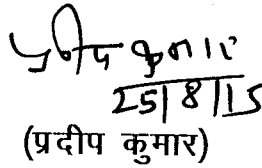 प्रदीप कुमार
25/8/15
(प्रदीप कुमार)